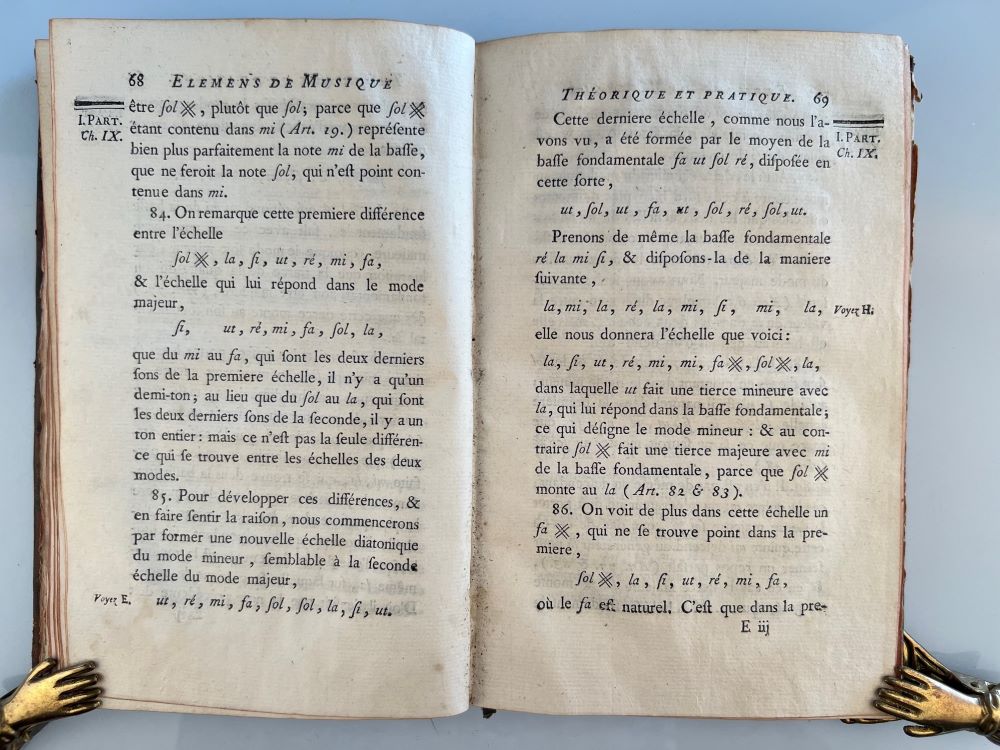 68 ELEMENS DE MUSIQUE
I. PART.
Ch. IX.
être ſol ※, plutôt que ſol; parce que ſol ※
étant contenu dans mi (Art. 19.) repréſente
bien plus parfaitement la note mi de la baſſe,
que ne feroit la note ſol, qui n'eſt point con-
tenue dans mi.
84. On remarque cette premiere différence
entre l'échelle
ſol ※, la, ſi, ut, ré, mi, fa,
& l'échelle qui lui répond dans le mode
majeur,
ſi, ut, ré, mi, fa, ſol, la,
que du mi au fa, qui ſont les deux derniers
ſons de la premiere échelle, il n'y a qu'un
demi-ton; au lieu que du ſol au la, qui ſont
les deux derniers ſons de la ſeconde, il y a un
ton entier: mais ce n'eſt pas la ſeule différen-
ce qui ſe trouve entre les échelles des deux
modes.
85. Pour développer ces différences, &
en faire ſentir la raiſon, nous commencerons
par former une nouvelle échelle diatonique
du mode mineur, ſemblable à la ſeconde
échelle du mode majeur,
Voyez E. ut, ré, mi, fa, ſol, ſol, la, ſi, ut.
THÉORIQUE ET PRATIQUE. 69
I. PART.
Ch. IX.
Cette derniere échelle, comme nous l'a-
vons vu, a été formée par le moyen de la
baſſe fondamentale fa ut ſol ré, diſpoſée en
cette ſorte,
ut, ſol, ut, fa, ut, ſol, ré, ſol, ut.
Prenons de même la baſſe fondamentale
ré la mi ſi, & diſpoſons-la de la maniere
ſuivante,
la, mi, la, ré, la, mi, ſi, mi, la, Voyez H.
elle nous donnera l'échelle que voici:
la, ſi, ut, ré, mi, mi, fa ※, ſol ※, la,
dans laquelle ut fait une tierce mineure avec
la, qui lui répond dans la baſſe fondamentale;
ce qui déſigne le mode mineur: & au con-
traire ſol ※ fait une tierce majeure avec mi
de la baſſe fondamentale, parce que ſol ※
monte au la (Art. 82 & 83).
86. On voit de plus dans cette échelle un
fa ※, qui ne ſe trouve point dans la pre-
miere,
ſol ※, la, ſi, ut, ré, mi, fa,
où le fa eſt naturel. C'eſt que dans la pre-
E iij